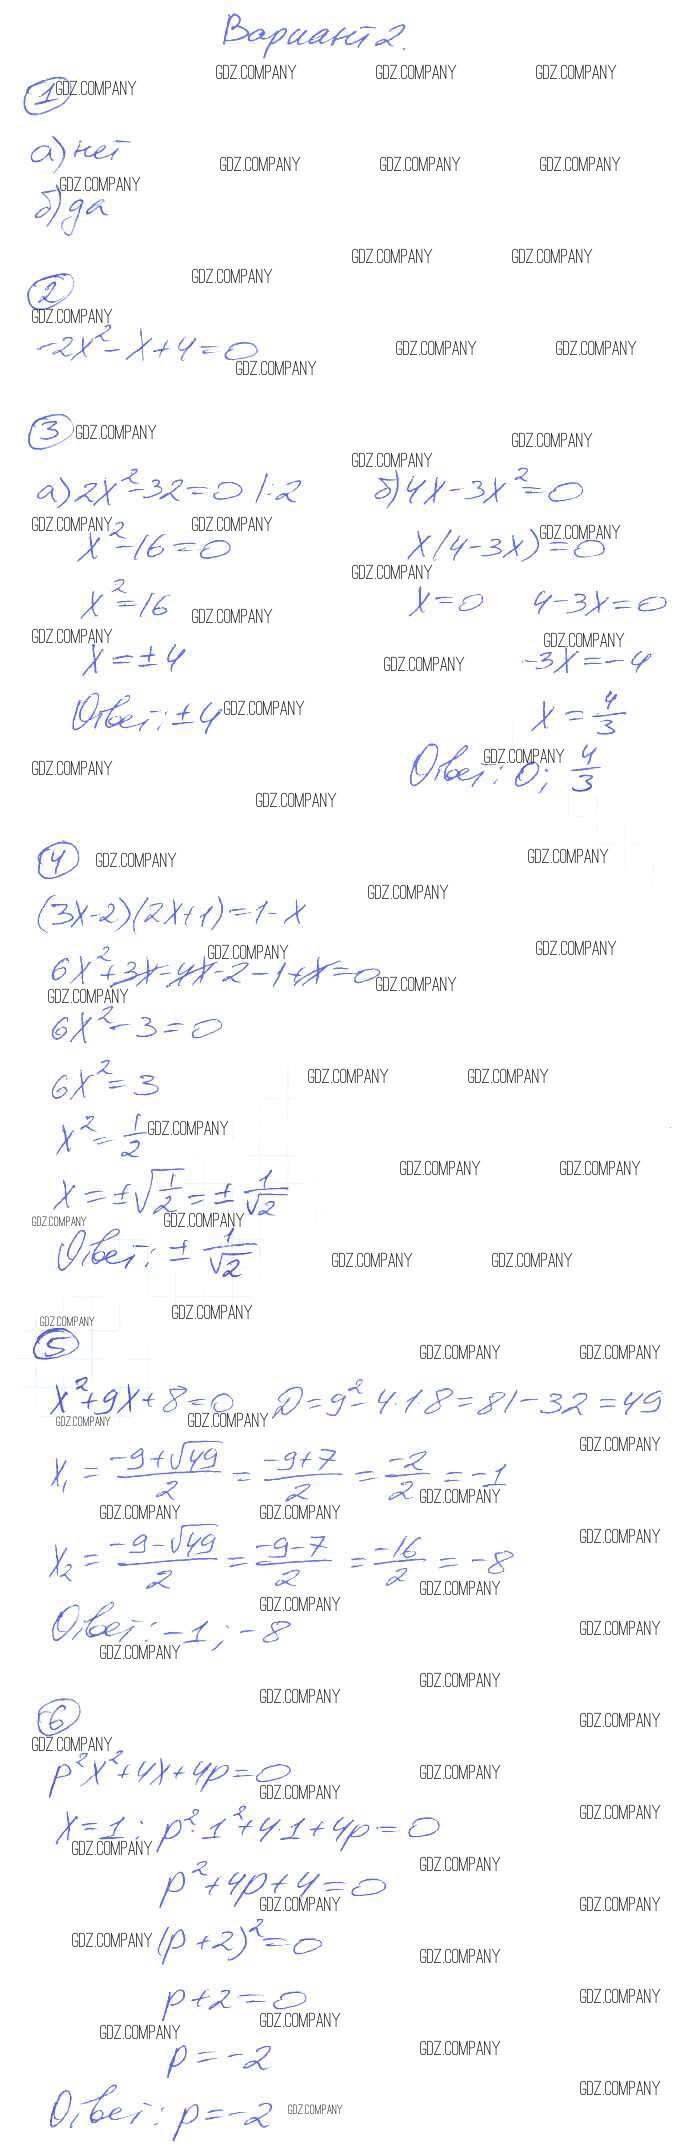 Вариант 2.
GDZ.COMPANY GDZ.COMPANY GDZ.COMPANY
1 GDZ.COMPANY
а) нет
GDZ.COMPANY GDZ.COMPANY GDZ.COMPANY
GDZ.COMPANY
б) да
GDZ.COMPANY GDZ.COMPANY
GDZ.COMPANY
2
GDZ.COMPANY
-2x² - x + 4 = 0
GDZ.COMPANY GDZ.COMPANY
GDZ.COMPANY
3 GDZ.COMPANY
GDZ.COMPANY
GDZ.COMPANY
а) 2x² - 32 = 0 |:2 б) 4x - 3x² = 0
GDZ.COMPANY GDZ.COMPANY GDZ.COMPANY
x² - 16 = 0 x(4 - 3x) = 0
GDZ.COMPANY
x² = 16 x = 0 4 - 3x = 0
GDZ.COMPANY
GDZ.COMPANY GDZ.COMPANY
x = ±4 -3x = -4
GDZ.COMPANY
Ответ: ±4 GDZ.COMPANY x = 4/3
GDZ.COMPANY GDZ.COMPANY
Ответ: 0; 4/3
GDZ.COMPANY
4 GDZ.COMPANY GDZ.COMPANY
GDZ.COMPANY
(3x-2)(2x+1) = 1 - x
GDZ.COMPANY GDZ.COMPANY
6x² + 3x - 4x - 2 - 1 + x = 0
GDZ.COMPANY GDZ.COMPANY
6x² - 3 = 0
6x² = 3
GDZ.COMPANY GDZ.COMPANY
x² = 1/2 GDZ.COMPANY
GDZ.COMPANY GDZ.COMPANY
x = ±√1/2 = ± 1/√2
GDZ.COMPANY GDZ.COMPANY
Ответ: ± 1/√2
GDZ.COMPANY GDZ.COMPANY
GDZ.COMPANY
GDZ.COMPANY
5
GDZ.COMPANY GDZ.COMPANY
x² + 9x + 8 = 0 D = 9² - 4·1·8 = 81 - 32 = 49
GDZ.COMPANY GDZ.COMPANY
GDZ.COMPANY
x₁ = (-9+√49)/2 = (-9+7)/2 = -2/2 = -1
GDZ.COMPANY
GDZ.COMPANY GDZ.COMPANY
GDZ.COMPANY
x₂ = (-9-√49)/2 = (-9-7)/2 = -16/2 = -8
GDZ.COMPANY
GDZ.COMPANY
Ответ: -1; -8
GDZ.COMPANY
GDZ.COMPANY
GDZ.COMPANY
GDZ.COMPANY
6
GDZ.COMPANY
GDZ.COMPANY
p²x² + 4x + 4p = 0
GDZ.COMPANY
GDZ.COMPANY
GDZ.COMPANY
x = 1: p²·1² + 4·1 + 4p = 0
GDZ.COMPANY
GDZ.COMPANY
p² + 4p + 4 = 0
GDZ.COMPANY GDZ.COMPANY
GDZ.COMPANY (p+2)² = 0
GDZ.COMPANY
p + 2 = 0
GDZ.COMPANY
GDZ.COMPANY
GDZ.COMPANY
p = -2
GDZ.COMPANY
GDZ.COMPANY
Ответ: p = -2 GDZ.COMPANY